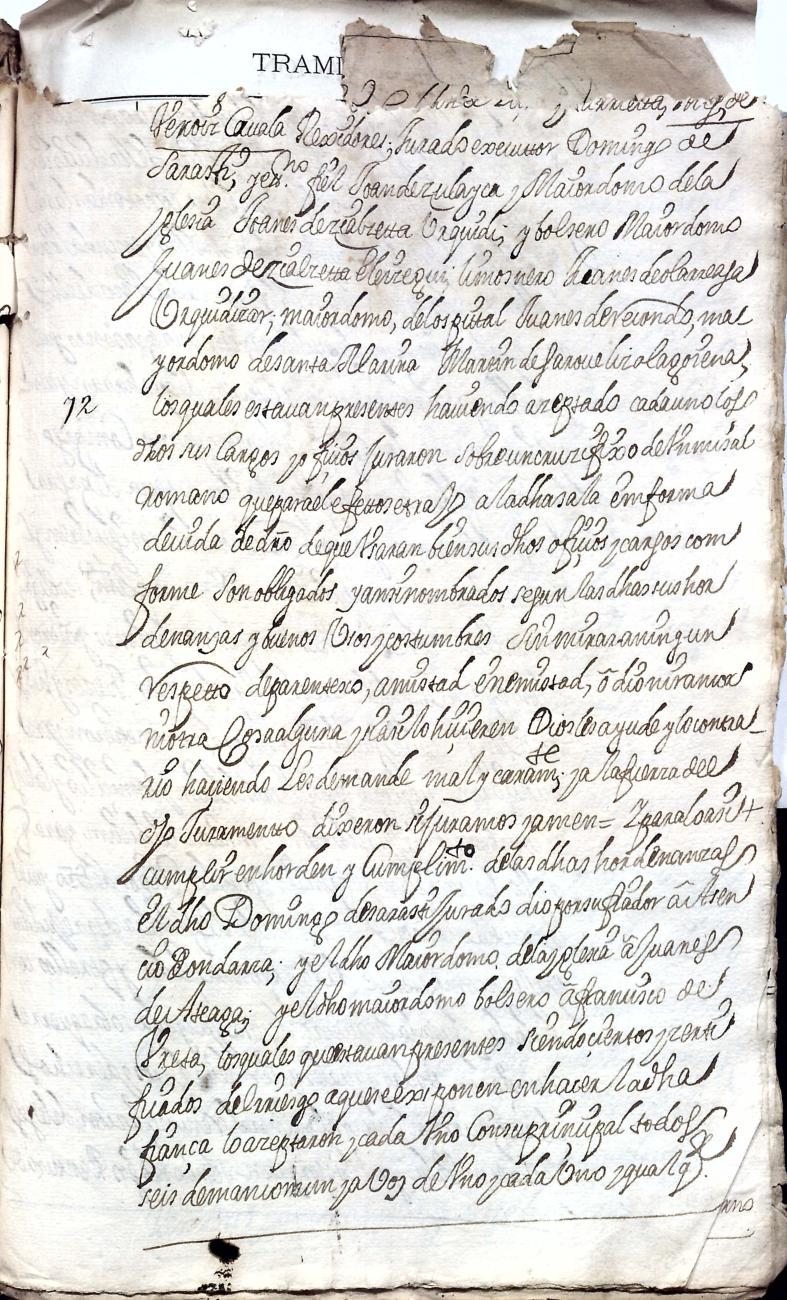 TRAMI
Verois Çavala Rexidores, Jurado executtor Domingo de
Sarasti, y en.no fiel Joan de Zulayca y Maiordomo de la
yglesia Joanes de Yçabretta Urquidi, y bolsero Maiordomo
Juanes de Yçabretta limosnero Juanes de olarreaga
Urquialçor; maiordomo, del ospital Juanes de Recondo, ma
yordomo de santa Marina Martin de Garave
72 los quales estavan presentes haviendo azeptado cada uno los
dhos sus Cargos y ofiçios Juraron sobre un cruçifixo de Un misal
romano que para el efetto se trajo a la dha sala en forma
devida de dro de que Usaran bien sus dhos ofiçios y cargos com
forme son obligados y ansi nombrados segun las dhas sus hor
denanzas y buenos Usos y costumbres sin mirar a ningun
respetto de parentexo, amistad enemistad, o dio ni ramor
ni otra Cosa alguna y si asi lo hiçieren Dios les ayude y lo contra
rio haçiendo Les demande mal y caram.te y a la fuerza del
dho Juramento dixeron si Juramos y amen = Y para lo asi
cumplir en horden y Cumplim.to de las dhas hordenanzas
el dho Domingo de sarasti Jurado dio por su fiador a Asen
cio Gondarra; y el dho Maiordomo de la yglesia a Juanes
de Ateaga; y el dho maiordomo bolsero a françisco de
Ureta, los quales que estavan presentes siendo ciertos y zerti
ficados del rriesgo a que se exponen en haçer la dha
fiança lo azeptaron y cada Uno Con su prinçipal todos
seis de mancomun y a Voz de Uno y cada Uno y qual q.r